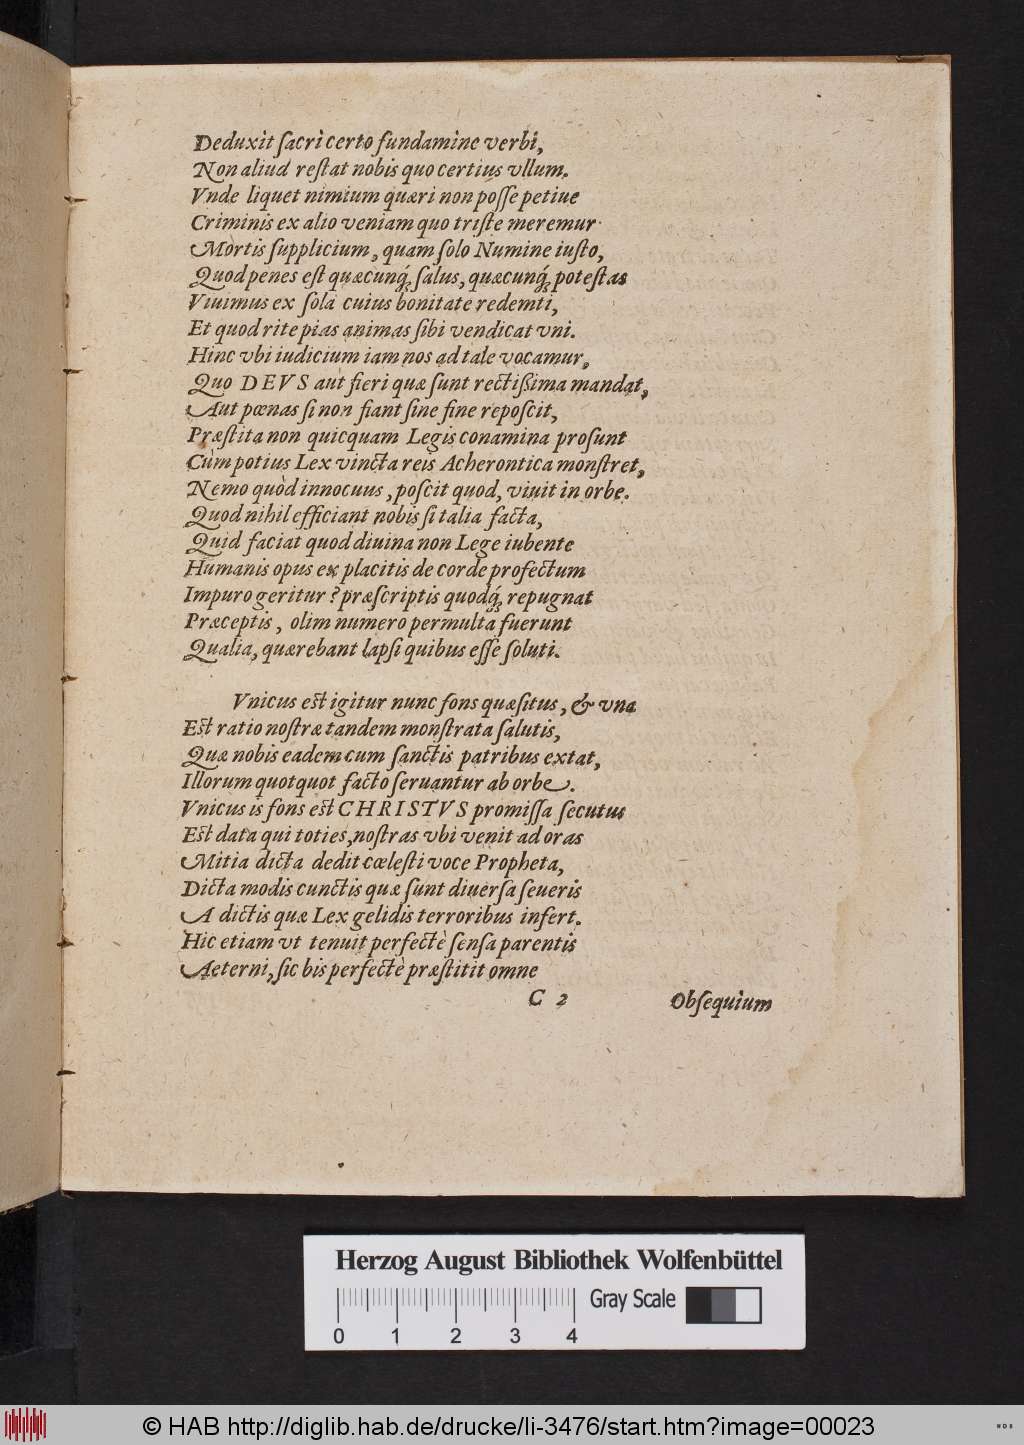 Deduxit sacri certo fundamine verbi,
Non aliud restat nobis quo certius vllum.
Vnde liquet nimium quæri non posse petiue
Criminis ex alio veniam quo triste meremur
Mortis supplicium, quam solo Numine iusto,
Quod penes est quæcunq́; salus, quæcunq́; potestas
Viuimus ex sola cuius bonitate redemti,
Et quod rite pias animas sibi vendicat vni.
Hinc vbi iudicium iam nos ad tale vocamur,
Quo DEVS aut fieri quæ sunt rectißima mandat,
Aut pœnas si non fiant sine fine reposcit,
Præstita non quicquam Legis conamina prosunt
Cùm potius Lex vincta reis Acherontica monstret,
Nemo quòd innocuus, poscit quod, viuit in orbe.
Quod nihil efficiant nobis si talia facta,
Quid faciat quod diuina non Lege iubente
Humanis opus ex placitis de corde profectum
Impuro geritur? præscriptis quodq́; repugnat
Præceptis, olim numero permulta fuerunt
Qualia, quærebant lapsi quibus esse soluti.
Vnicus est igitur nunc fons quæsitus, & vna
Est ratio nostræ tandem monstrata salutis,
Quæ nobis eadem cum sanctis patribus extat,
Illorum quotquot facto seruantur ab orbe.
Vnicus is fons est CHRISTVS promissa secutus
Est data qui toties, nostras vbi venit ad oras
Mitia dicta dedit cœlesti voce Propheta,
Dicta modis cunctis quæ sunt diuersa seueris
A dictis quæ Lex gelidis terroribus infert.
Hic etiam vt tenuit perfectè sensa parentis
Aeterni, sic bis perfectè præstitit omne
C 2 Obsequium
Herzog August Bibliothek Wolfenbüttel
0 1 2 3 4 Gray Scale
© HAB http://diglib.hab.de/drucke/li-3476/start.htm?image=00023